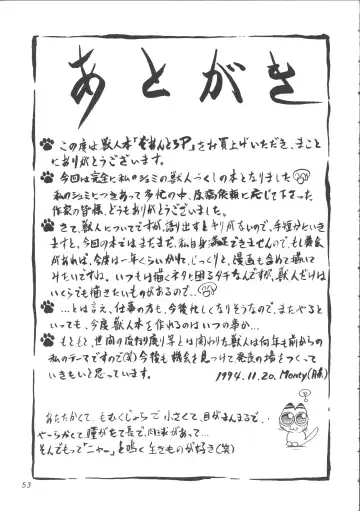 あとがき
この度は獣人本「もあんとろP」をお買上げいただき、まこと
にありがとうございます。
今回は完全に私のシュミの獣人づくしの本となりました
私のシュミにつきあって多忙の中、原稿依頼に応じて下さった
作家の皆様、どうもありがとうございました。
さて、獣人についてですが、語り出すとキリがないので、手短かにいき
ますと、今回の本ではまだまだ、私自身満足できませんので、もし機会
があれば、今度は一年くらいかけれ、じっくりと、漫画も含めて描いて
みたいですね。いつもは描くネタに困るタチなんですが、獣人だけは
いくらでも描きたいものがあるので…
…とは言え、仕事の方も、今後忙しくなりそうなので、またやると
いっても、今度獣人本を作れるのはいつの事か…
もともと、世間の流行り廃り等とは関わりな獣人は何年も前からの
私のテーマですので(笑)今後も機会を見つけて発表の場をつくって
いきたいと思っています。
1994.11.20. Monty
あたたかくて、もむくじゃらで 小さくて、目がまんまるで、
やーらかくて、瞳がたて長で、肉球があって…
そんでもって"ニャー"と鳴く生きものが好き(笑)
53